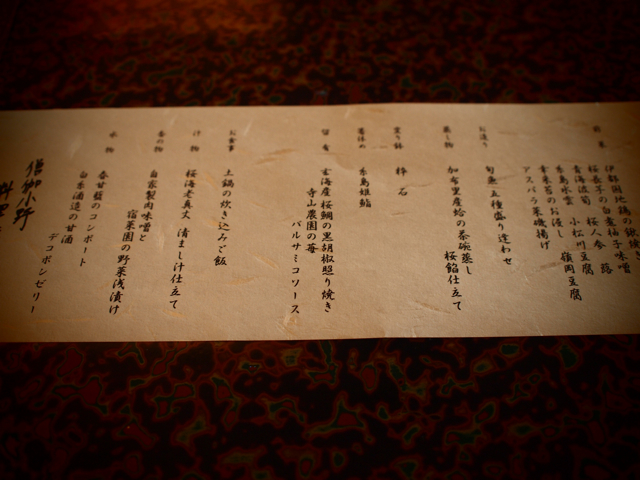 前菜
伊都国地鶏の
桜長芋の白煮柚子味噌
青海波筍 桜人参 蕗
糸島水雲 小松川豆腐 嶺岡豆腐
幸来苔のお浸し
アスパラ菜磯揚げ
お造り
旬魚五種盛り達わせ
蒸し物
加布里産蛤の茶碗蒸し
桜餡仕立て
粋石
箸休め
糸島雄鮨
留肴
玄海産桜鯛の黒胡椒照り焼き
寺山農園の苺
バルサミコソース
お食事
土鍋の炊き込みご飯
汁物
桜海老真丈 清まし汁仕立て
香の物
自家製肉味噌と
宿菜園の野菜浅漬け
水物
春甘馥のコンポート
白糸酒造の甘酒
デコポンゼリー
僧伽小野